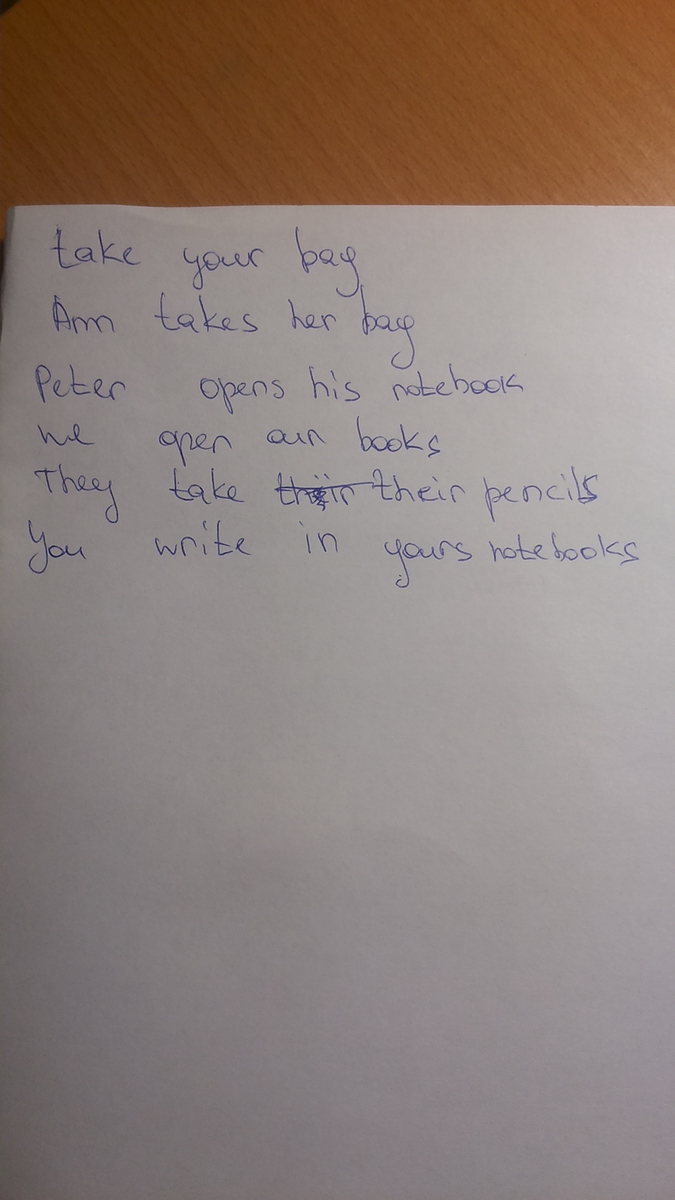 take your bag
Ann takes her bag
Peter opens his notebook
we open our books
They take their pencils
You write in yours notebooks